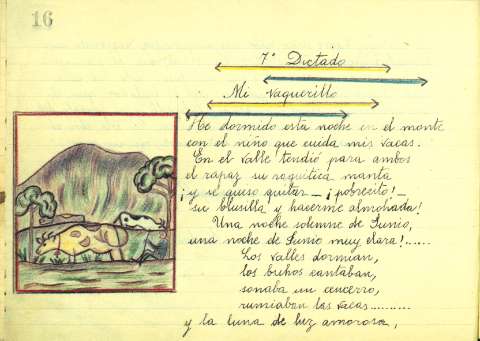 16
7º Dictado
Mi vaquerillo
He dormido esta noche en el monte
con el niño que cuida mis vacas.
En el valle tendió para ambos
el rapaz su raquítica manta
¡y se quiso quitar – ¡pobrecito! –
su blusilla y hacerme almohada!
Una noche solemne de Junio,
una noche de Junio muy clara!......
Los valles dormían,
los buhos cantaban,
sonaba un cencerro,
rumiaban las vacas..........
y la luna de luz amorosa,